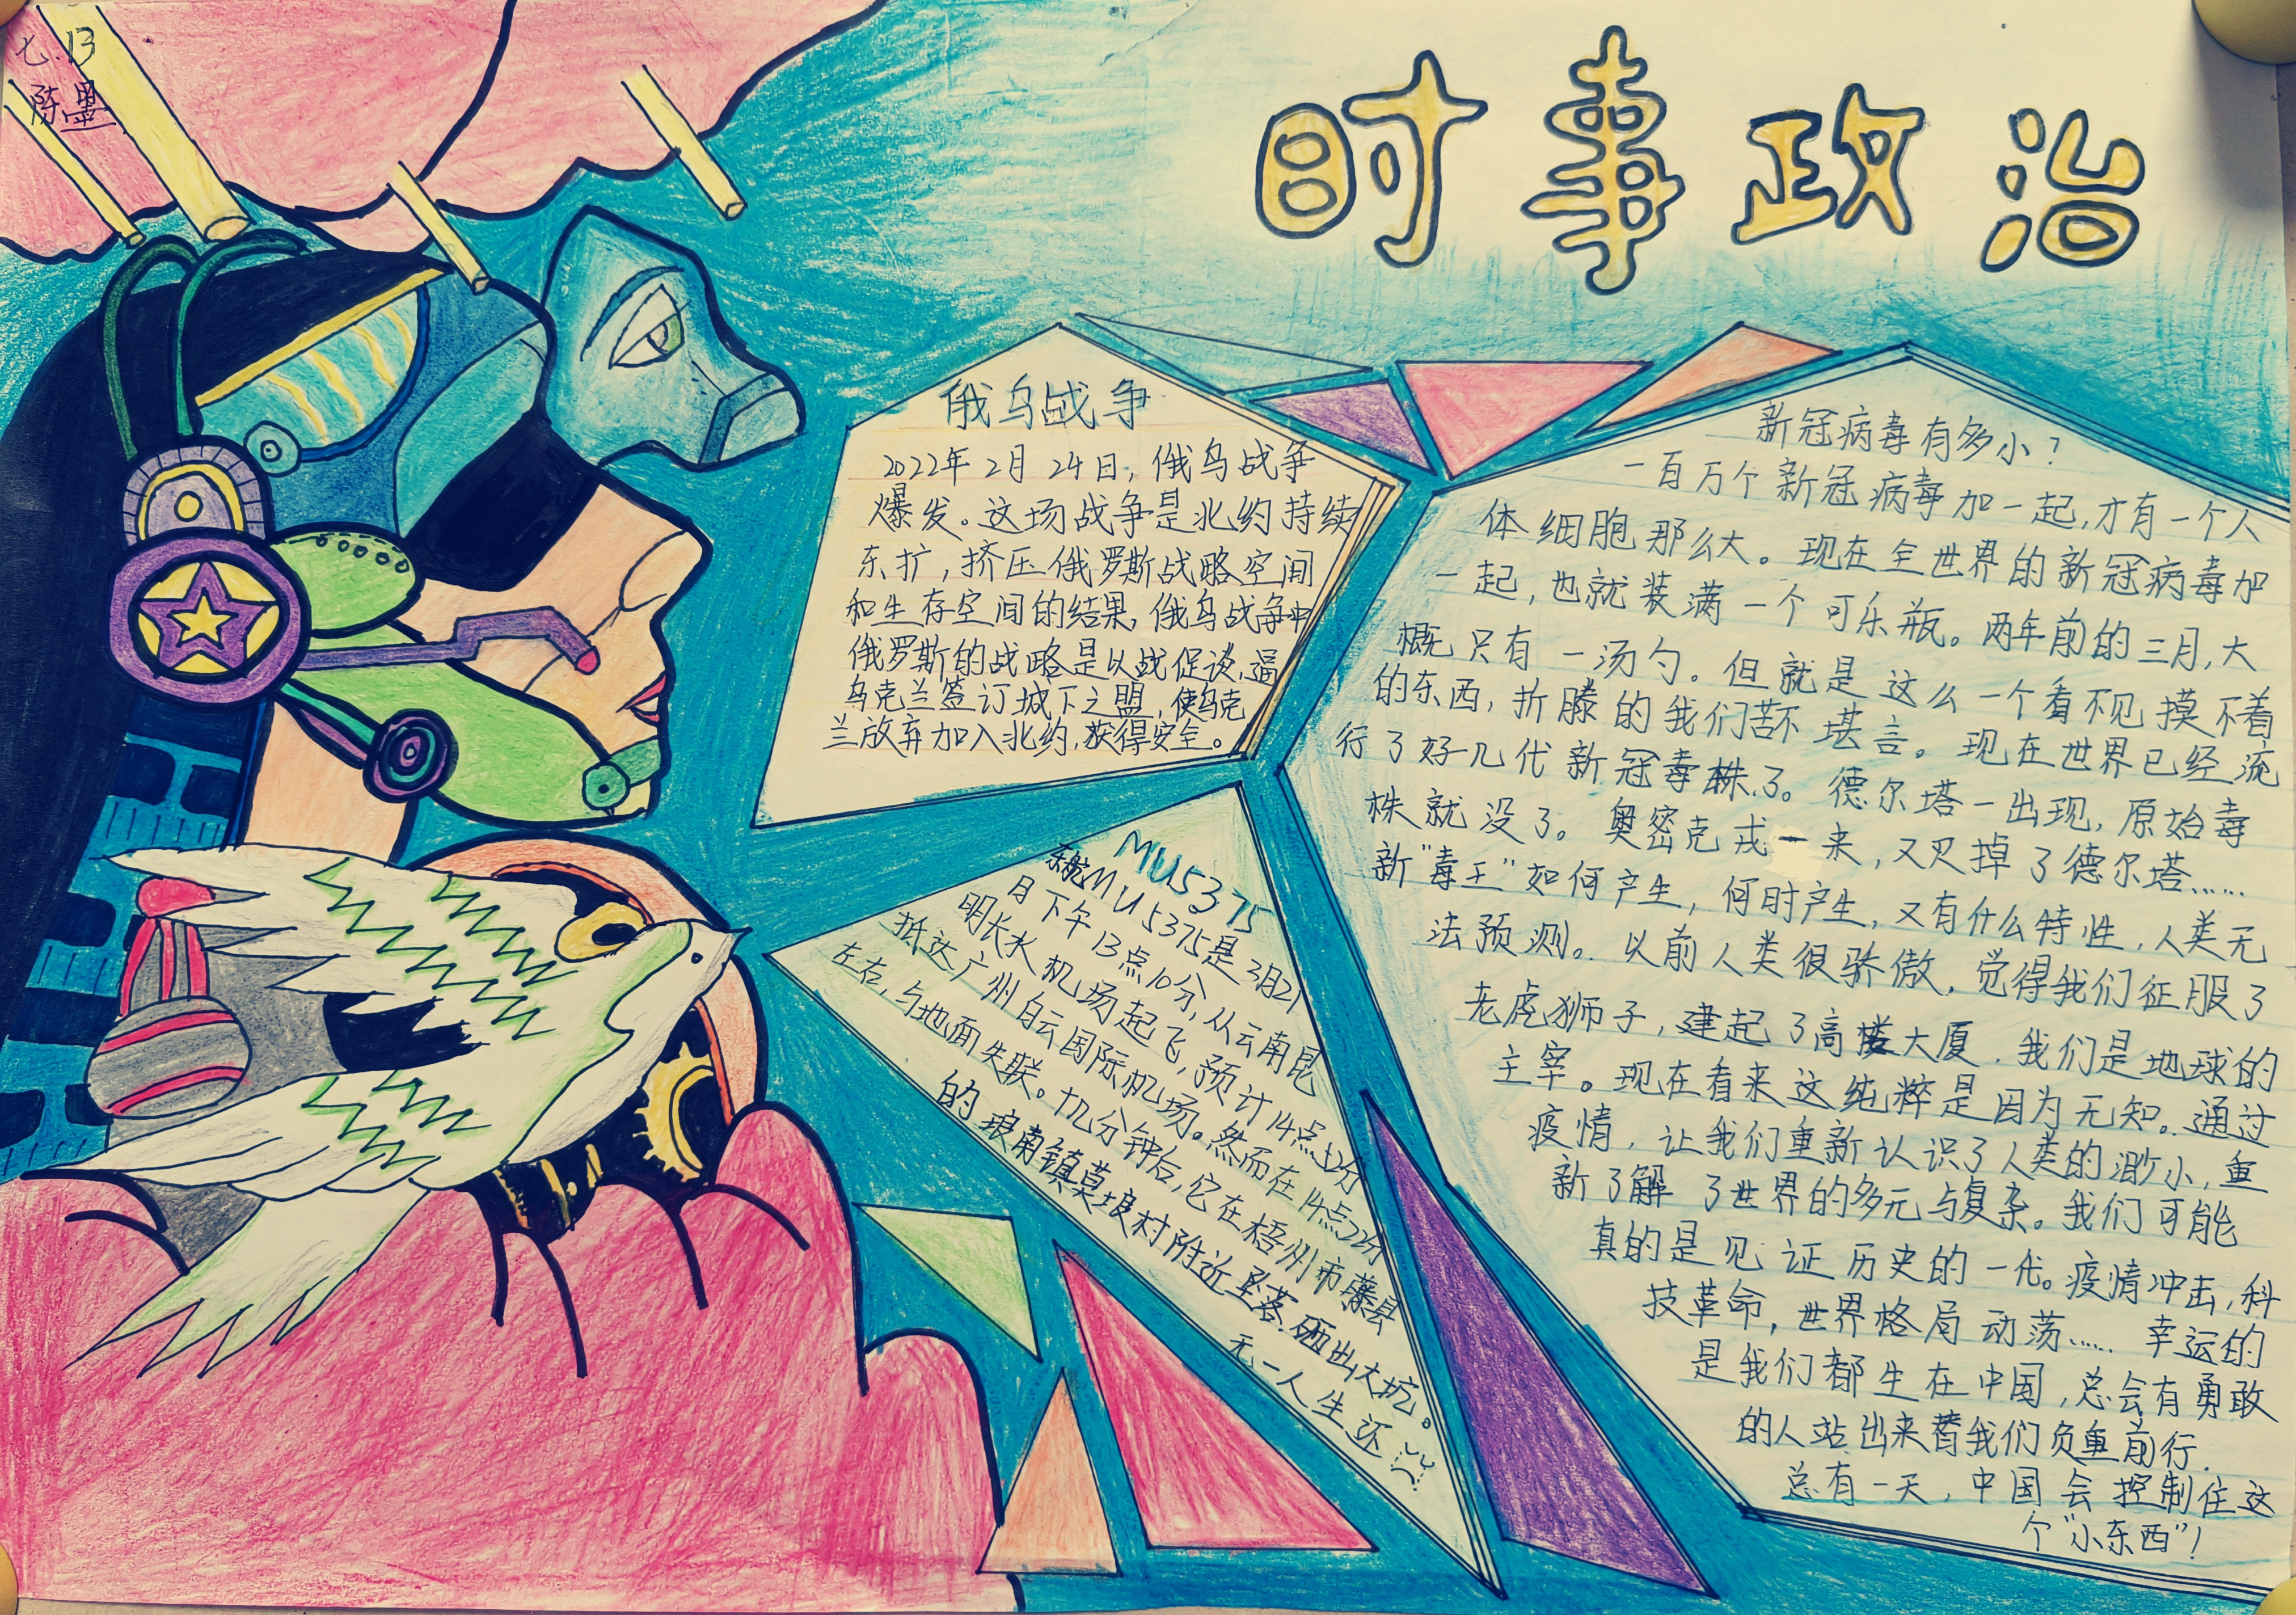 七.13
陈墨
时事政治
俄乌战争
2022年2月24日，俄乌战争
爆发。这场战争是北约持续
东扩，挤压俄罗斯战略空间
和生存空间的结果，俄乌战争中
俄罗斯的战略是以战促谈，逼
乌克兰签订城下之盟，使乌克
兰放弃加入北约，获得安全。
MU5375
东航MU5375是3月21
日下午13点10分，从云南昆
明长水机场起飞，预计14点52分
抵达广州白云国际机场。然而在14点22分
左右，与地面失联。几分钟后，它在梧州市藤县
的琅南镇莫埌村附近坠落.砸出大坑。
无一人生还
新冠病毒有多小？
一百万个新冠病毒加一起，才有一个人
体细胞那么大。现在全世界的新冠病毒加
一起，也就装满一个可乐瓶。两年前的三月，大
概只有一汤勺。但就是这么一个看不见摸不着
的东西，折腾的我们苦不堪言。现在世界已经流
行了好几代新冠毒株了。德尔塔一出现，原始毒
株就没了。奥密克戎一来，又灭掉了德尔塔……
新“毒王”如何产生，何时产生，又有什么特性，人类无
法预测。以前人类很骄傲，觉得我们征服了
老虎狮子，建起了高楼大厦，我们是地球的
主宰。现在看来这纯粹是因为无知。通过
疫情，让我们重新认识了人类的渺小，重
新了解了世界的多元与复杂。我们可能
真的是见证历史的一代。疫情冲击，科
技革命，世界格局动荡……幸运的
是我们都生在中国，总会有勇敢
的人站出来替我们负重前行.
总有一天，中国会控制住这
个“小东西”！